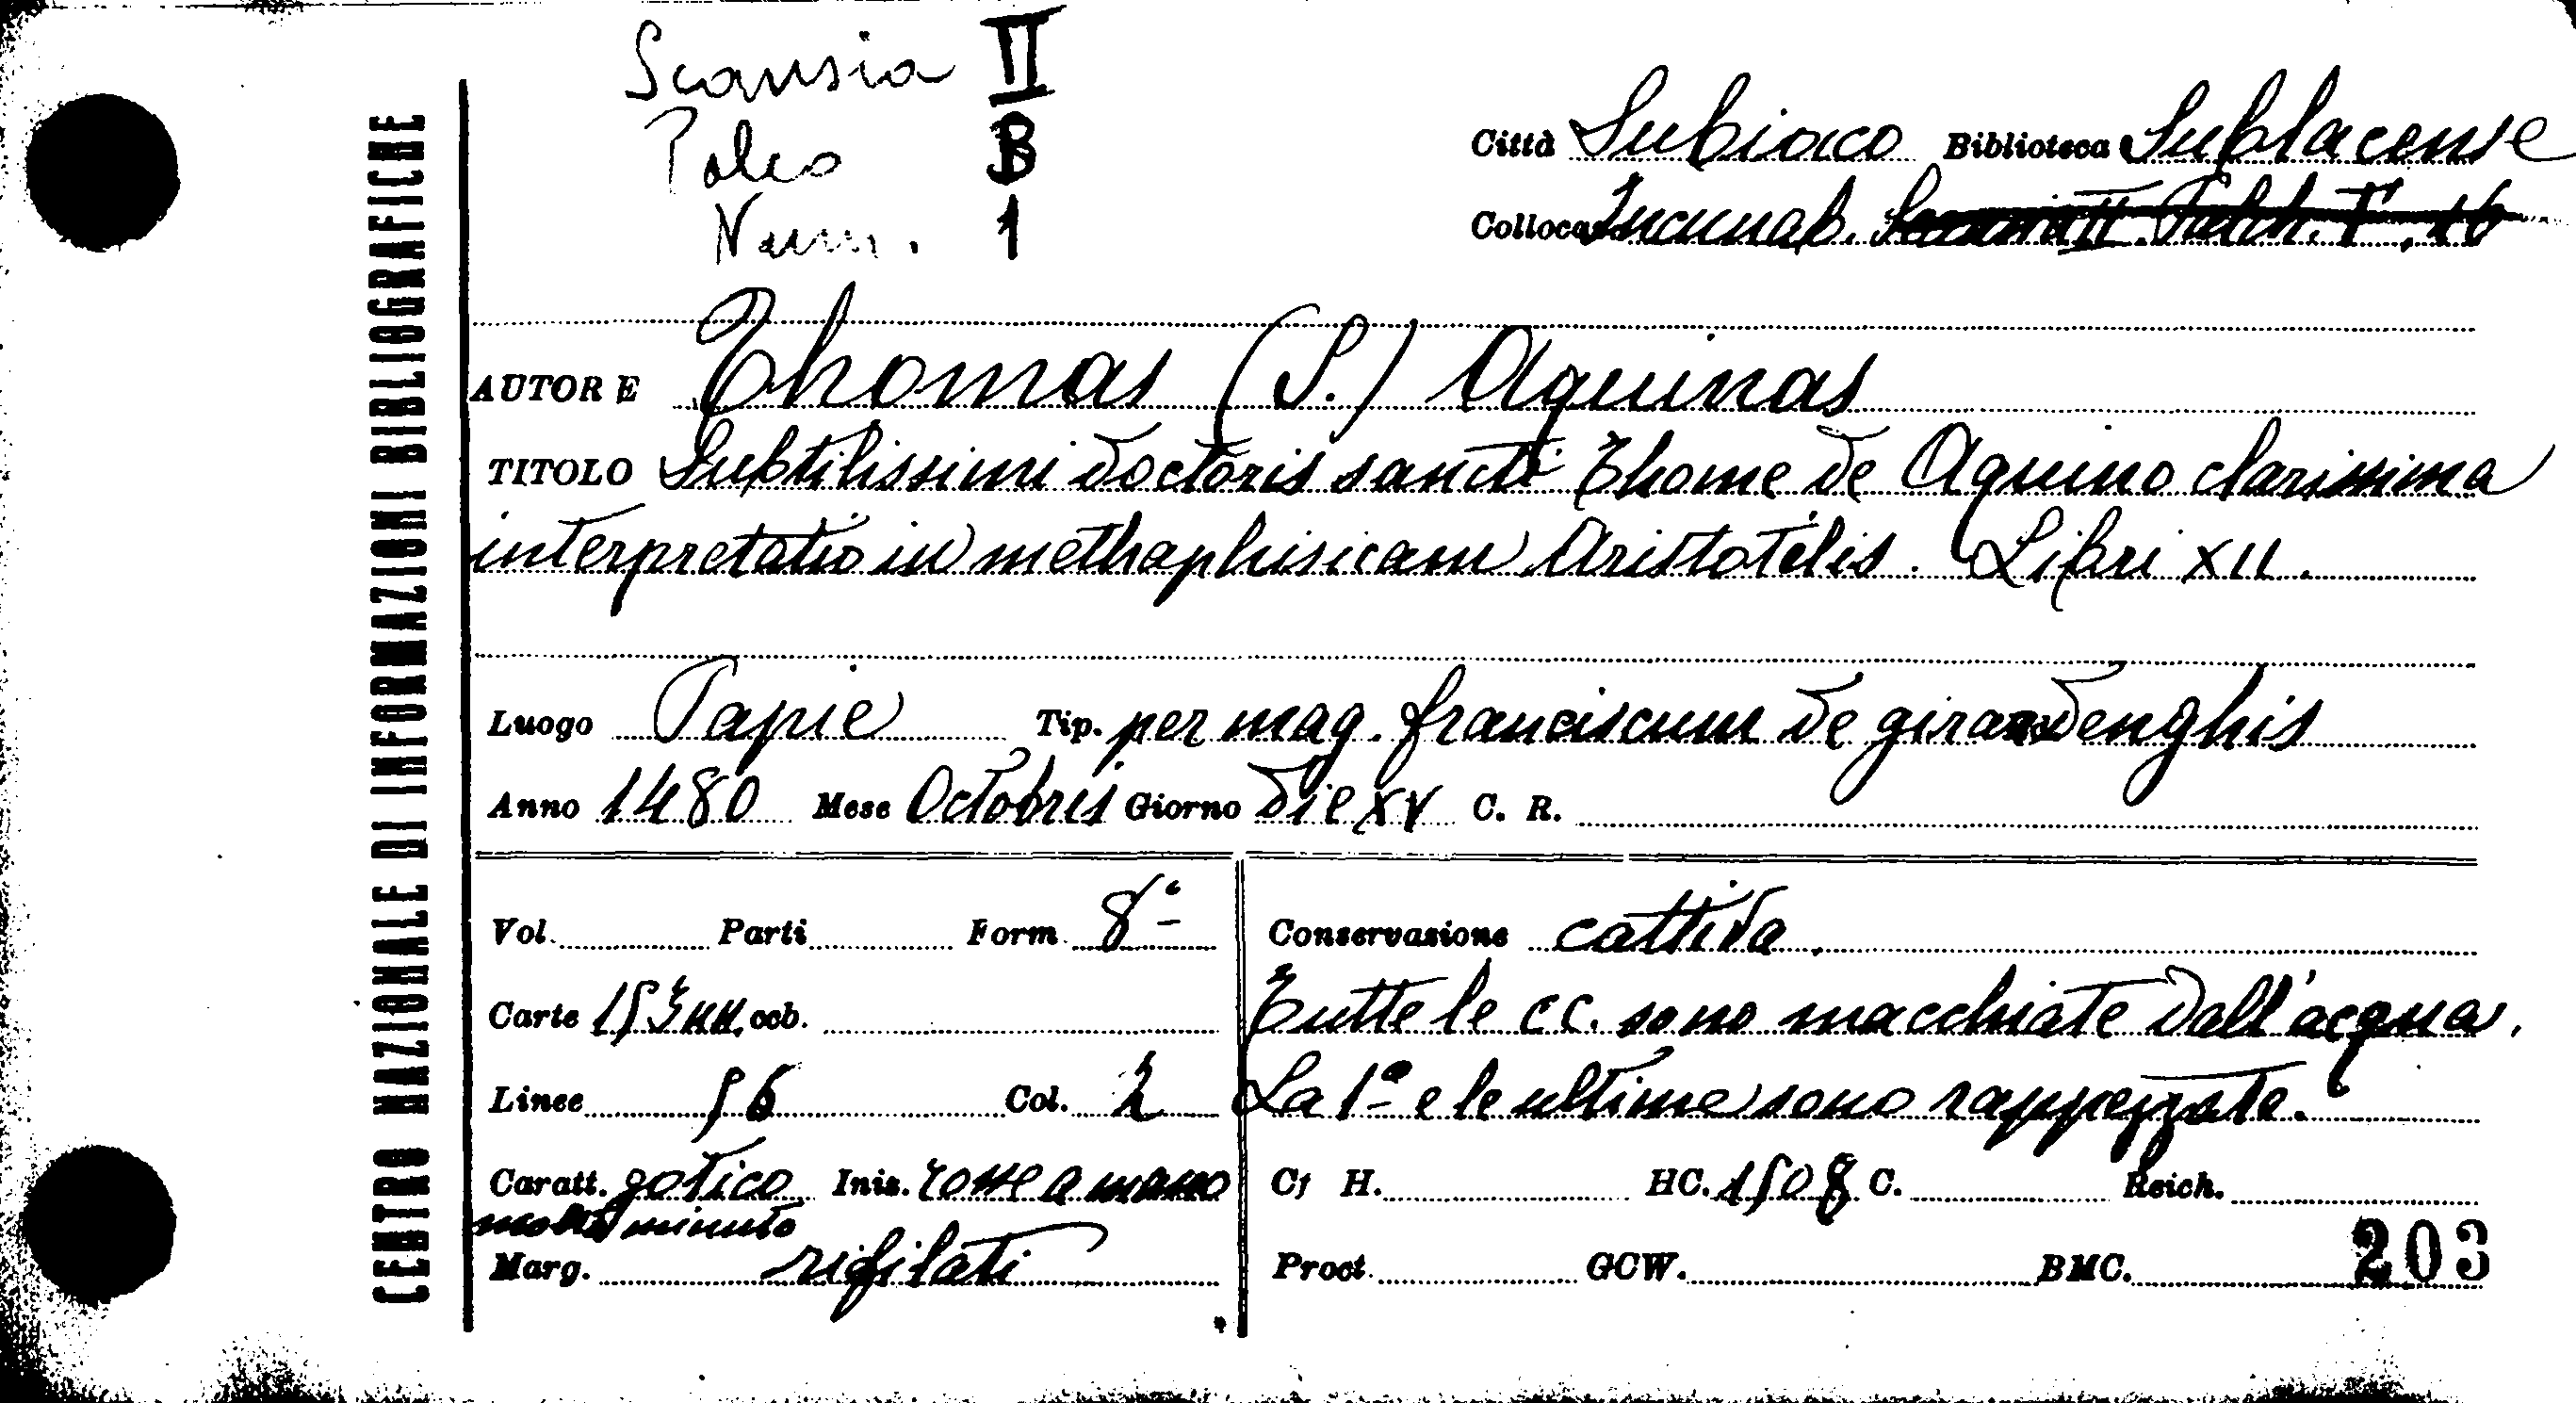 Scansia II
Palco B
Num. 1
Città Subiaco Biblioteca Sublacense
Colloca Incunab.
CENTRO NAZIONALE DI INFORMAZIONI BIBLIOGRAFICHE
AUTORE Thomas (S.) Aquinas
TITOLO Subtilissimi doctoris sancti Thome de Aquino clarissima
interpretatio in methaphisicam Aristotelis. Libri XII.
Luogo Papie Tip. per mag. franciscum de girardenghis
Anno 1480 Mese Octobris Giorno die XV C. R.
Vol. Parti Form. 8º
Carte 153 nn. ccb.
Linee 56 Col. 2
Caratt. gotico Iniz. rosse a mano
molto minuto
Marg. rifilati
Conservazione cattiva.
Tutte le cc. sono macchiate dall'acqua.
La 1ª e le ultime sono rappezzate.
Cf H. HC. 1508 C. Reich.
Proct. GCW. BMC. 203